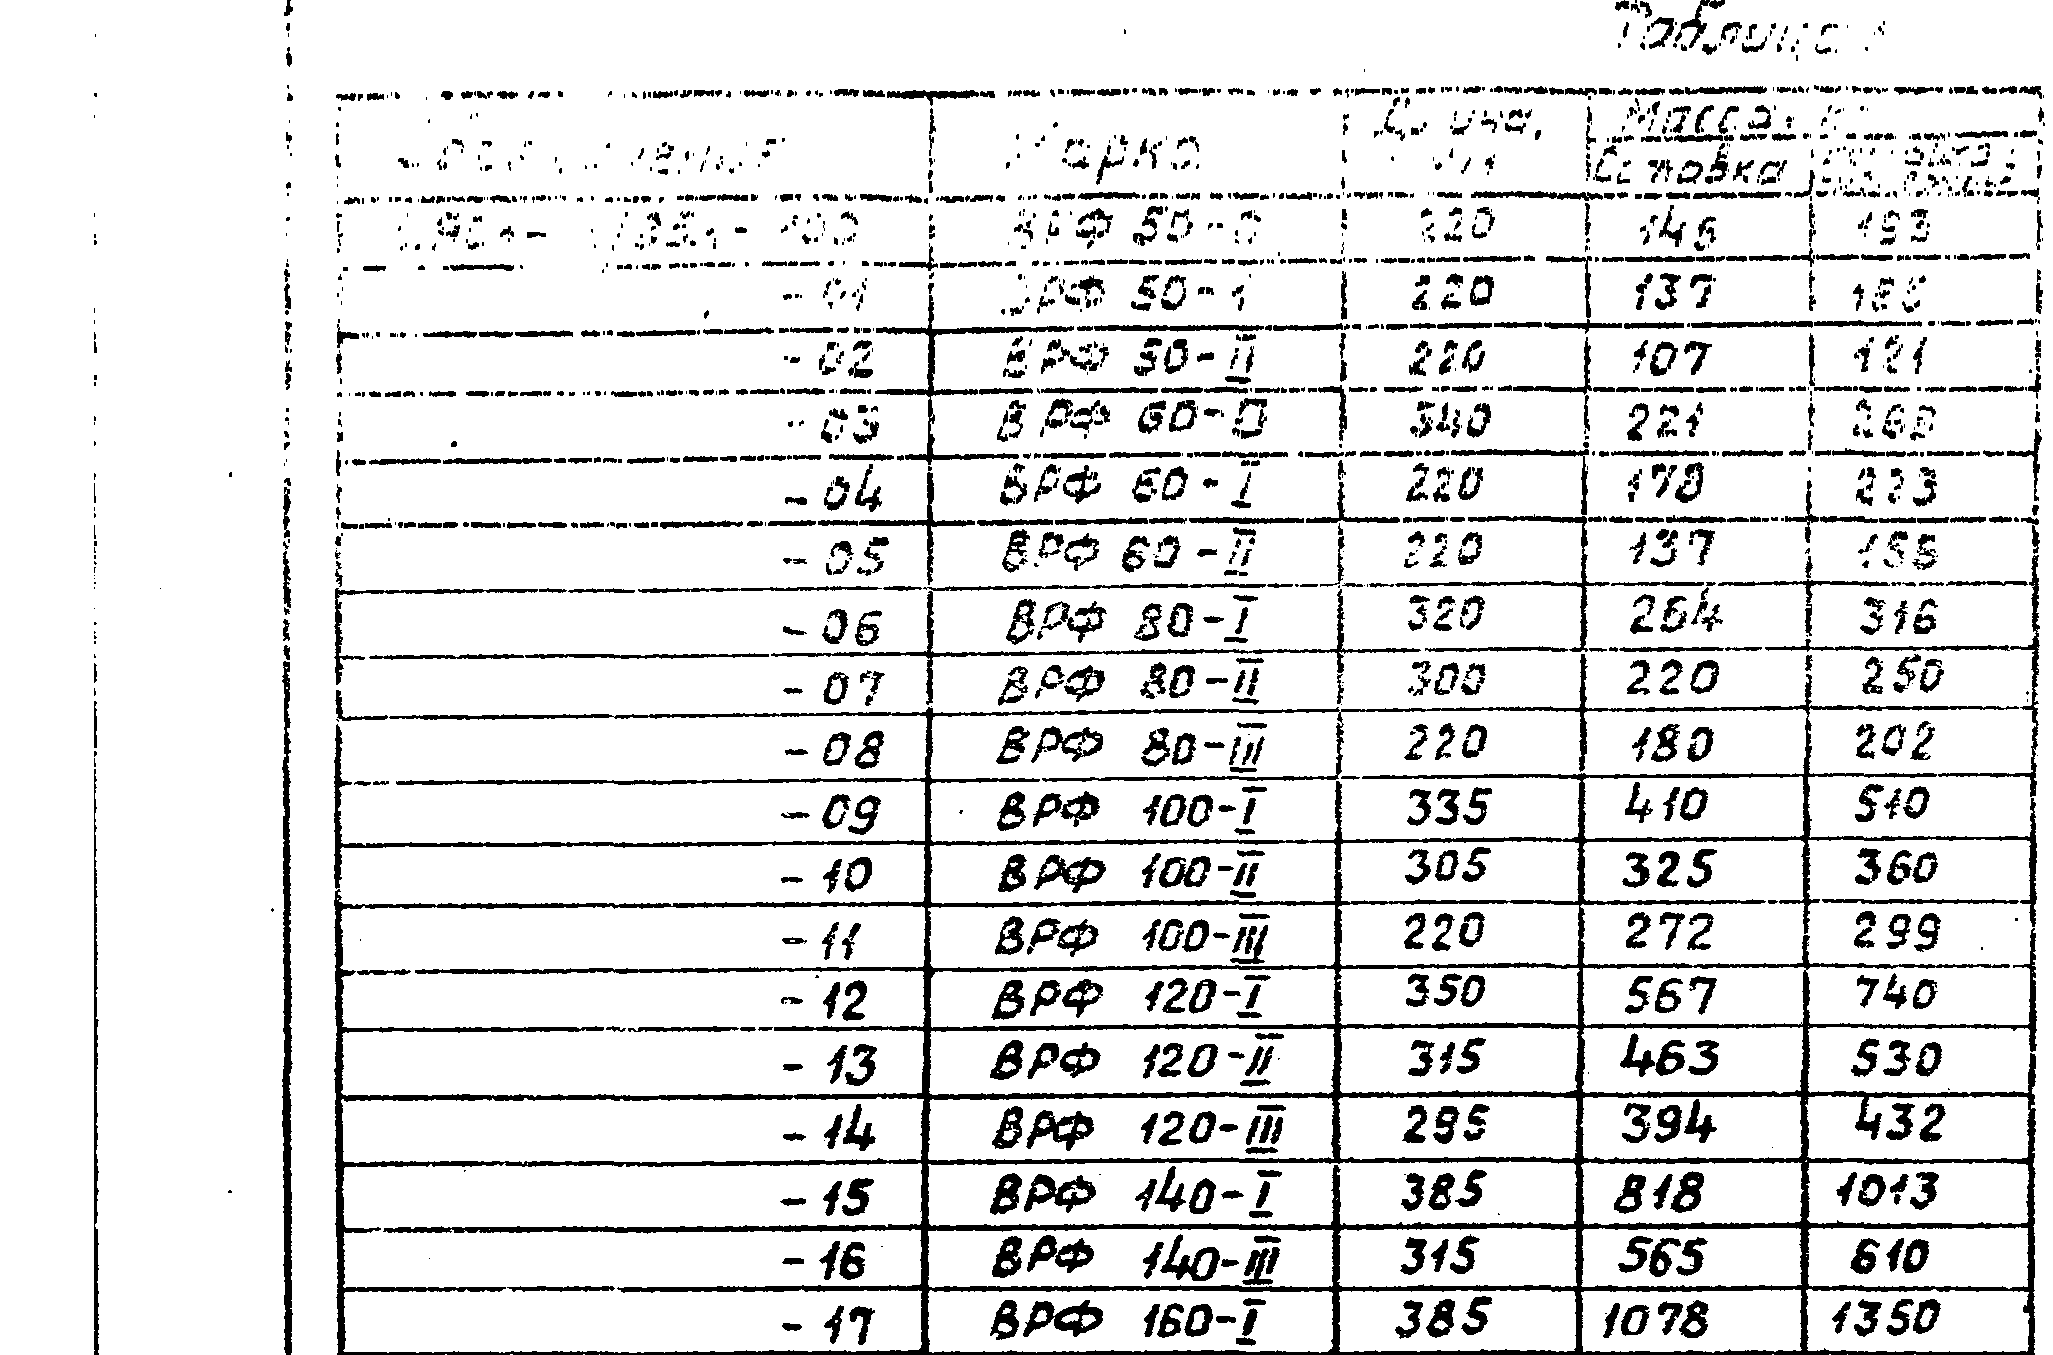 Таблица 1
Марка Длина, Масса,
мм Оснoвка
ВРФ 50-0 220 146 193
-01 ВРФ 50-1 220 137
-02 ВРФ 50-II 220 107 121
-03 ВРФ 60-0 340 221 260
-04 ВРФ 60-I 220 178 223
-05 ВРФ 60-II 220 137 158
-06 ВРФ 80-I 320 264 316
-07 ВРФ 80-II 300 220 250
-08 ВРФ 80-III 220 180 202
-09 ВРФ 100-I 335 410 510
-10 ВРФ 100-II 305 325 360
-11 ВРФ 100-III 220 272 299
-12 ВРФ 120-I 350 567 740
-13 ВРФ 120-II 315 463 530
-14 ВРФ 120-III 295 394 432
-15 ВРФ 140-I 385 818 1013
-16 ВРФ 140-III 315 565 610
-17 ВРФ 160-I 385 1078 1350